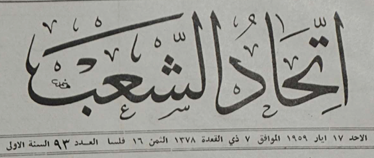 اتحاد الشعب
الاحد ١٧ ايار ١٩٥٩ الموافق ٧ ذي القعدة ١٣٧٨ الثمن ١٦ فلسا العدد ٩٣ السنة الاولى